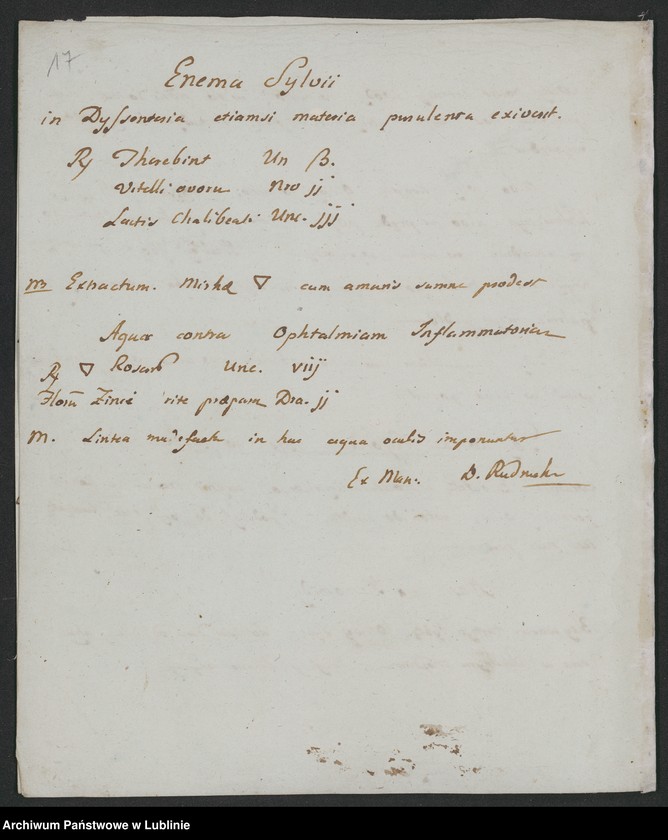 17
Enema Sylvii
in Dyssenteria etiamsi materia purulenta exivent.
℞ Therebint Un ß.
Vitelli ovoru Nro jj
Lactis Chalibeati Unc. jjj
Extractum. 🜄 cum amaris summe prodest
Aqua contra Ophtalmiam Inflammatoriam
℞ 🜄 Rosar Unc. viij
Florū Zinci rite præparr Dra. jj
M. Lintea madefacta in hac aqua oculis imponantur
Ex Man: D.
Archiwum Państwowe w Lublinie